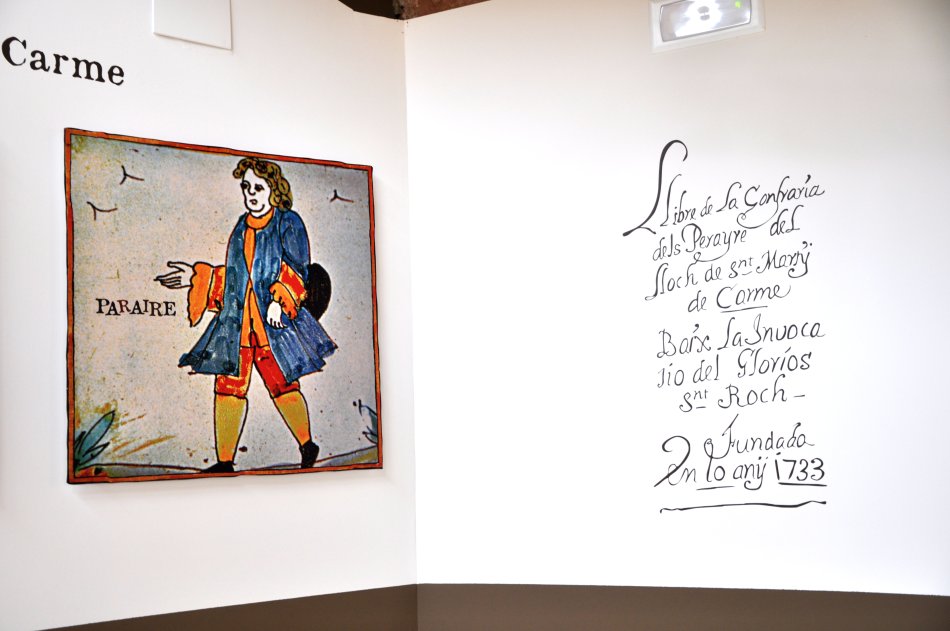 Carme
PARAIRE
Llibre de la Confraria
dels Perayre del
lloch de snt Martÿ
de Carme
Baix la Invoca
sio del Glorios
snt Roch -
Fundada
En lo anÿ 1733